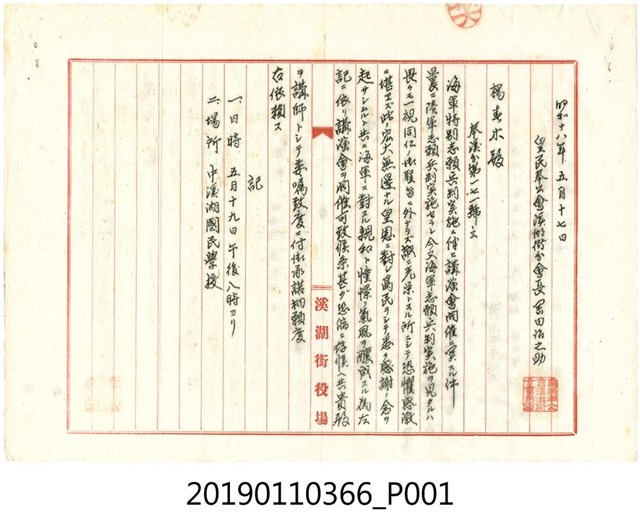 昭和十八年五月十七日
皇民奉公會溪湖街分會長
楊 殿
奉溪分第一七一號ノ
海軍特別志願兵制實施ニ伴フ講演會開催ニ関スル件
曩ニ陸軍志願兵制實施セラレ今又海軍志願兵制實施ヲ見タルハ
畏クモ一視同仁ノ御聖旨ニ外ナラズ誠ニ光栄トスル所ニシテ恐懼感激
ニ堪エズ此ノ宏大無邊ナル皇恩ニ對シ島民ヲシテ感謝ノ念ヲ
起サシムルト共ニ海軍ニ對スル親和ト憧憬ノ氣風ヲ醸成スル為左
記ニ依リ講演會ヲ開催可致候條甚ダ恐縮ニ存候ヘ共貴殿
ヲ講師トシテ委囑致度ニ付御承諾相願度
右依頼ス
記
一、日時 五月十九日午後八時ヨリ
二、場所 中溪湖國民學校
溪湖街役場
20190110366_P001